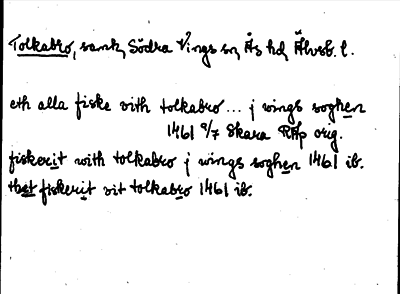 Tolkabro, samt, Södra Vings sn, Ås hd, Älvsb. l.
eth alla fiske vith tolkabro... j wings soghen
1461 9/7 Skara RAp orig.
fiskerit with tolkabro j wings soghen 1461 ib.
thet fiskerit vit tolkabro 1461 ib.